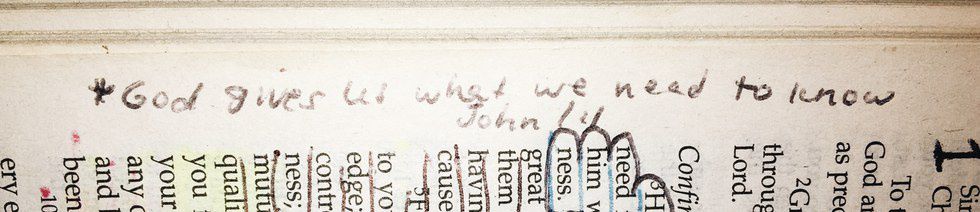 *God gives us what we need to know
John
1
Ch
To
God an
as prec
2Gr
throug
Lord.
Confir
need
him w
ness.
great
them
havin
cause
5F
to yo
edge;
contr
ness;
mutu
quali
you f
your
any o
and b
been
10
ery e